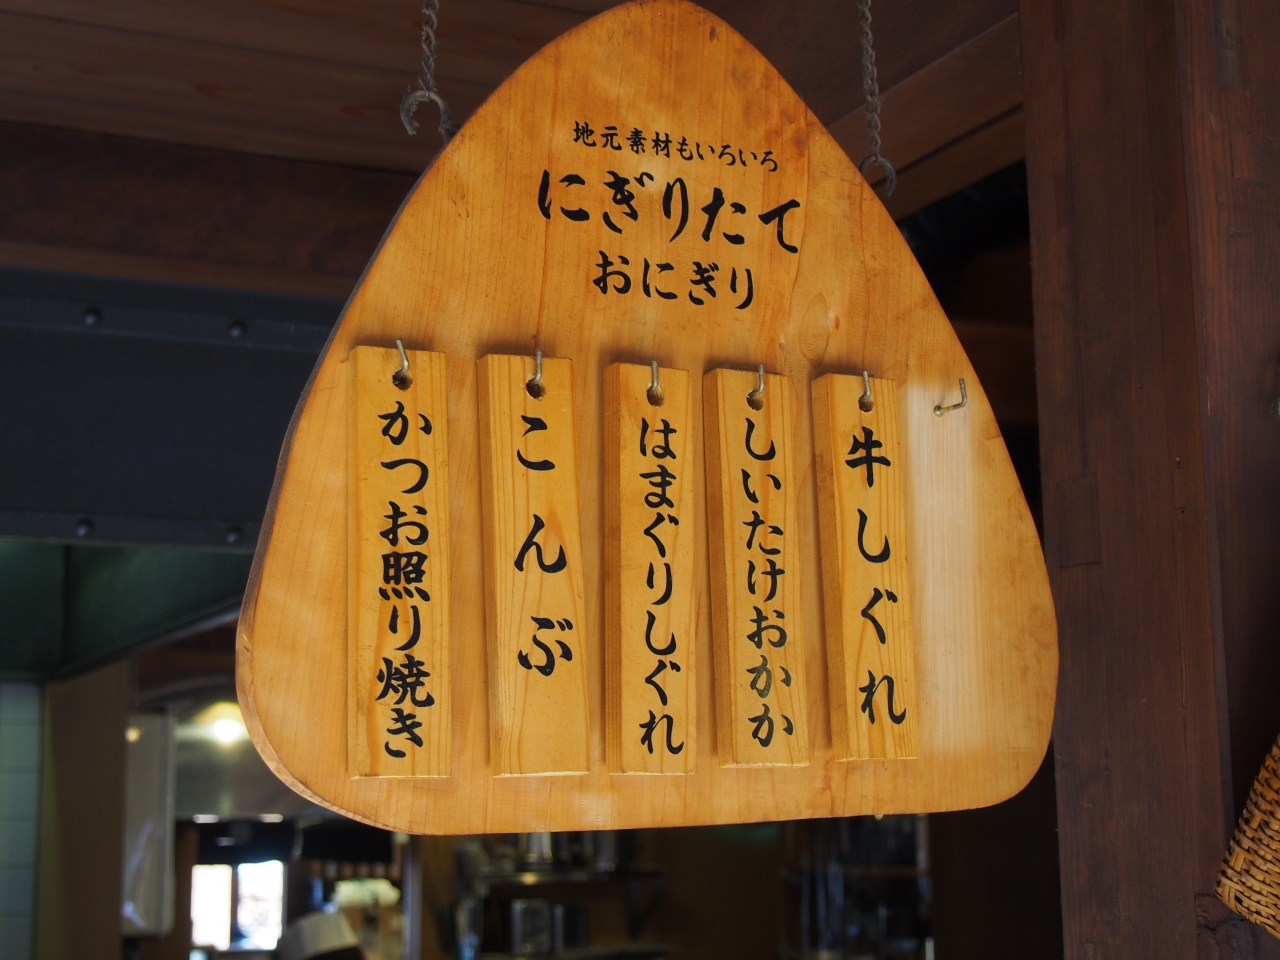 地元素材もいろいろ
にぎりたて
おにぎり
牛しぐれ
しいたけおかか
はまぐりしぐれ
こんぶ
かつお照り焼き